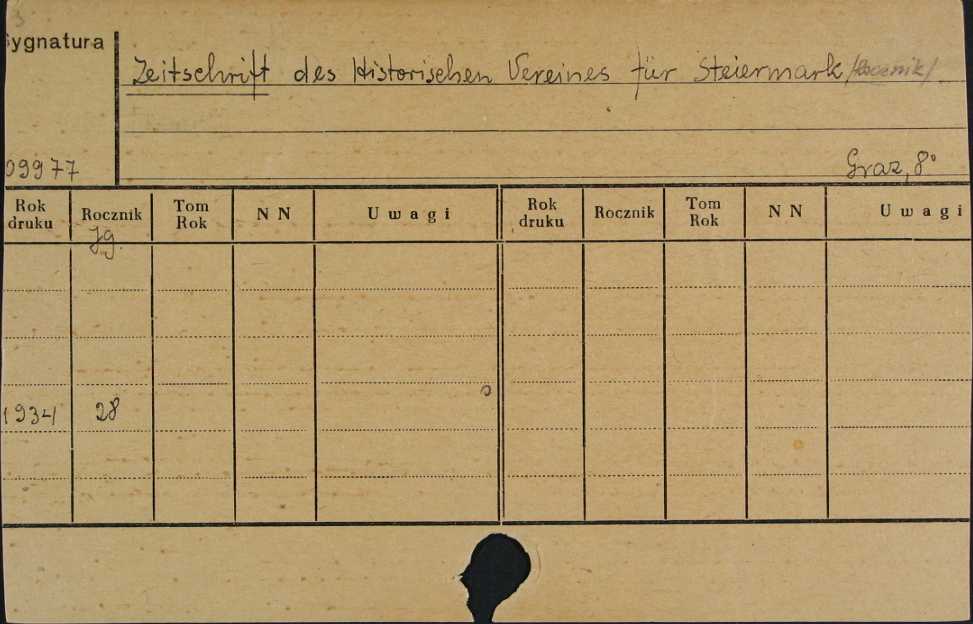 ygnatura
Zeitschrift des Historischen Vereines für Steiermark /Rocznik/
09977
Graz, 8°
Rok druku Rocznik Tom Rok N N Uwagi Rok druku Rocznik Tom Rok N N Uwagi
Jg.
1934 28